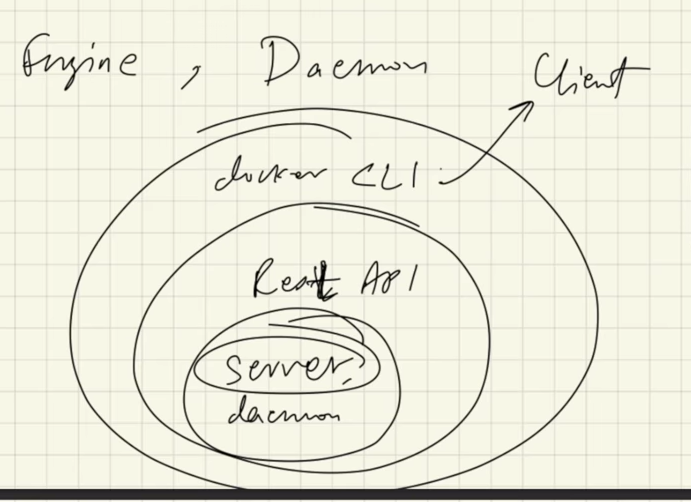 Engine , Daemon
Client
docker CLI
Rest API
server,
daemon